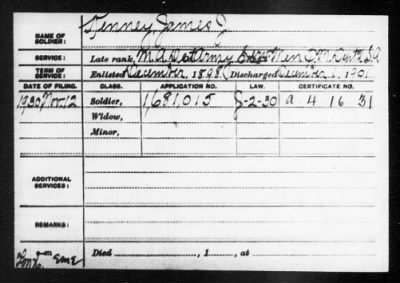 NAME OF SOLDIER: Tenney, James J.
SERVICE: Late rank, Army Serv Men
TERM OF SERVICE: Enlisted December, 1898, Discharged December 1901
DATE OF FILING. CLASS. APPLICATION NO. LAW. CERTIFICATE NO.
1930 Nov. 12 Soldier, 1,681,015 J-2-30 a 4 16 31
Widow,
Minor,
ADDITIONAL SERVICES:
REMARKS:
Died , 1 , at